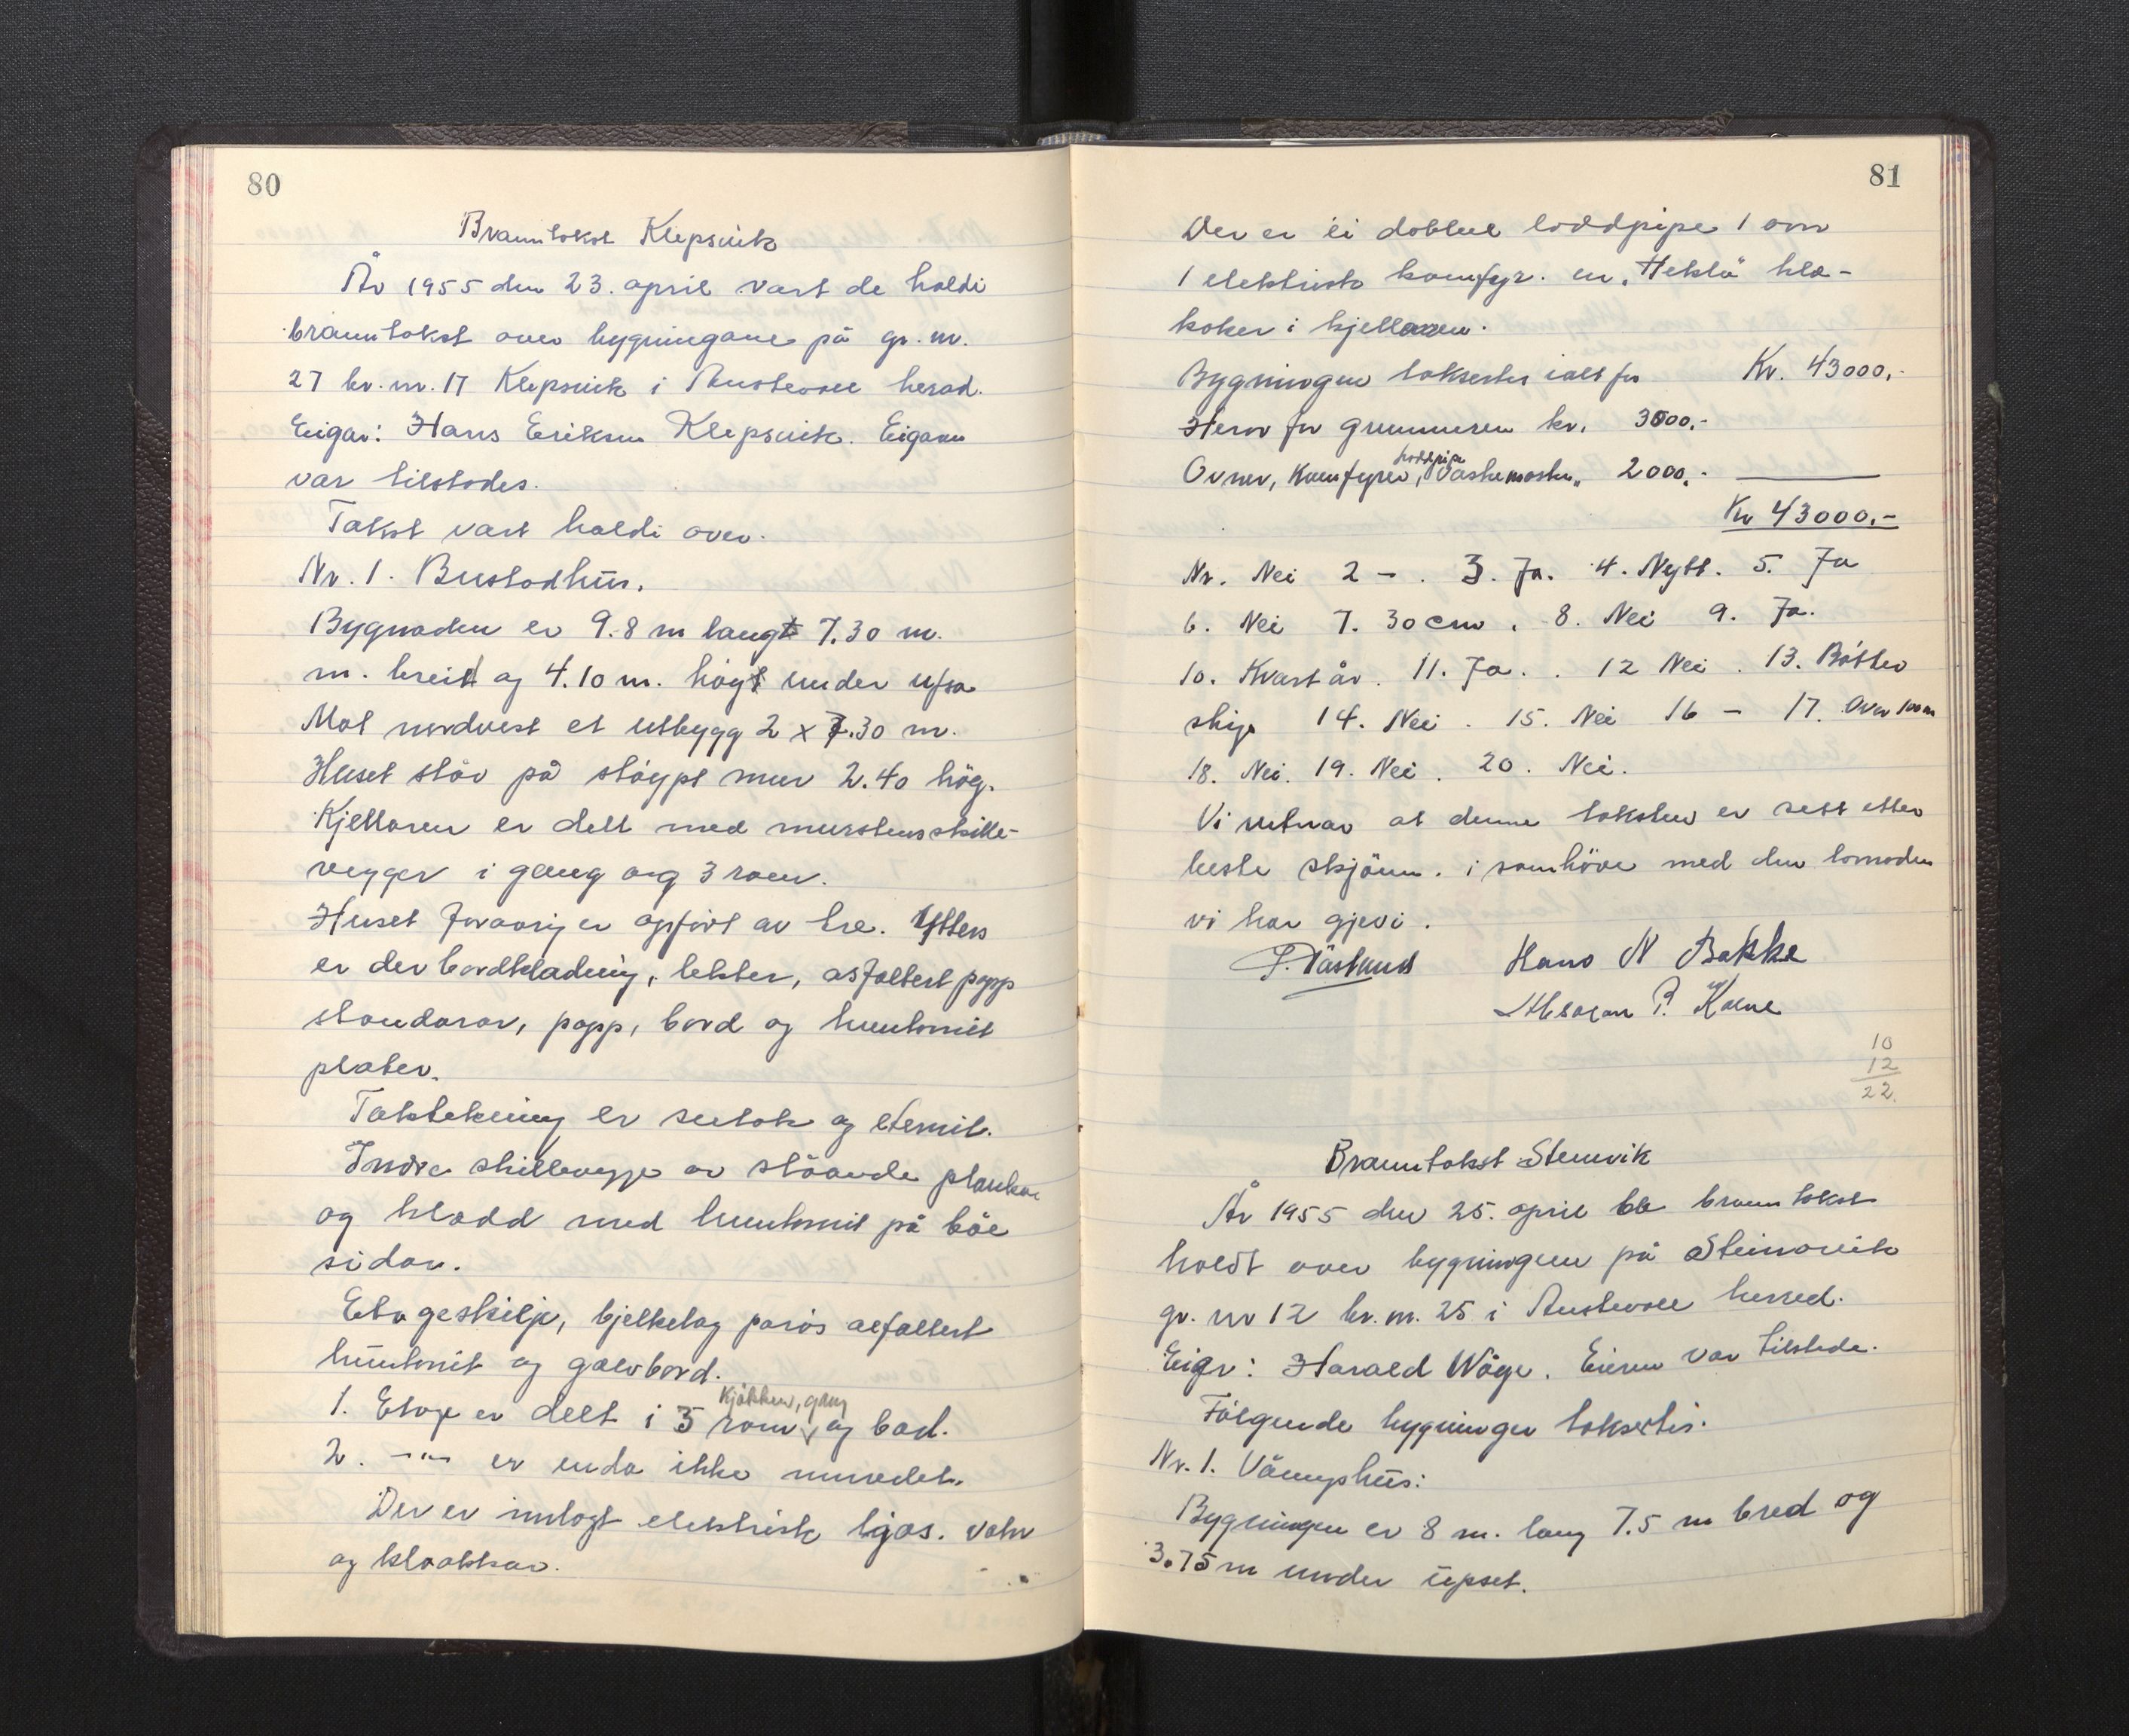 80
Branntakst Klepsvik
År 1955 den 23. april vart de haldi
branntakst over bygningane på gr. nr.
27 br. nr. 17 Klepsvik i Austevoll herad.
Eigar: Hans Eriksen Klepsvik. Eigaren
var tilstades.
Takst vart haldi over.
Nr. 1. Bustadhus.
Bygnaden er 9.8 m langt 7.30 m.
m. breid og 4.10 m. høgt under ufsa
Mot nordvest et utbygg 2 x 7.30 m.
Huset står på støypt mur 2.40 høg.
Kjellaren er delt med murstensskille-
vegger i gang og 3 rom.
Huset forøvrig er oppført av tre. Ytters
er der bordkladning, lekter, asfaltert papp
standarar, papp, bord og huntonit
plater.
Taktekning er sutak og eternit.
Indre skillevegge av ståande plankar
og kledd med huntonit på båe
sidor.
Etageskilje, bjelkelag porøs asfaltert
huntonit og golvbord.
1. Etage er delt i 3 rom, kjøkken, gang og bad.
2. -"- er enda ikke innredet.
Der er innlagt elektrisk ljos. vatn
og kloakkar.
81
Der er ei dobbel loddpipe 1 ovn
1 elektrisk komfyr. en "Hekla" klæ-
koker i kjellaren.
Bygningen takseres ialt for Kr. 43000,-
Herav for grunnmuren kr. 3500,-
Ovner, komfyrer, loddpipe vaskemaskin " 2000,-
Kr 43000,-
Nr. Nei 2 - . 3. Ja. 4. Nytt. 5. Ja
6. Nei 7. 30 cm . 8. Nei 9. Ja.
10. Kvart år. 11. Ja. . 12 Nei . 13. Bøtter
stige 14. Nei . 15. Nei 16 - 17. Over 100 m
18. Nei. 19. Nei . 20. Nei.
Vi vitnar at denne taksten er sett etter
beste skjønn. i samhøve med den lovnaden
vi har gjevi.
Hans N Bakke
P. Kalve
10
12
22
Branntakst Stenevik
År 1955 den 25. april ble branntakst
holdt over bygningen på Steinsvik
gr. nr 12 br. nr. 25 i Austevoll herred.
Eigr: Harald Våge. Eieren var tilstede.
Følgende bygninger takseres.
Nr. 1. Våningshus:
Bygningen er 8 m. lang 7.5 m bred og
3.75 m under upset.